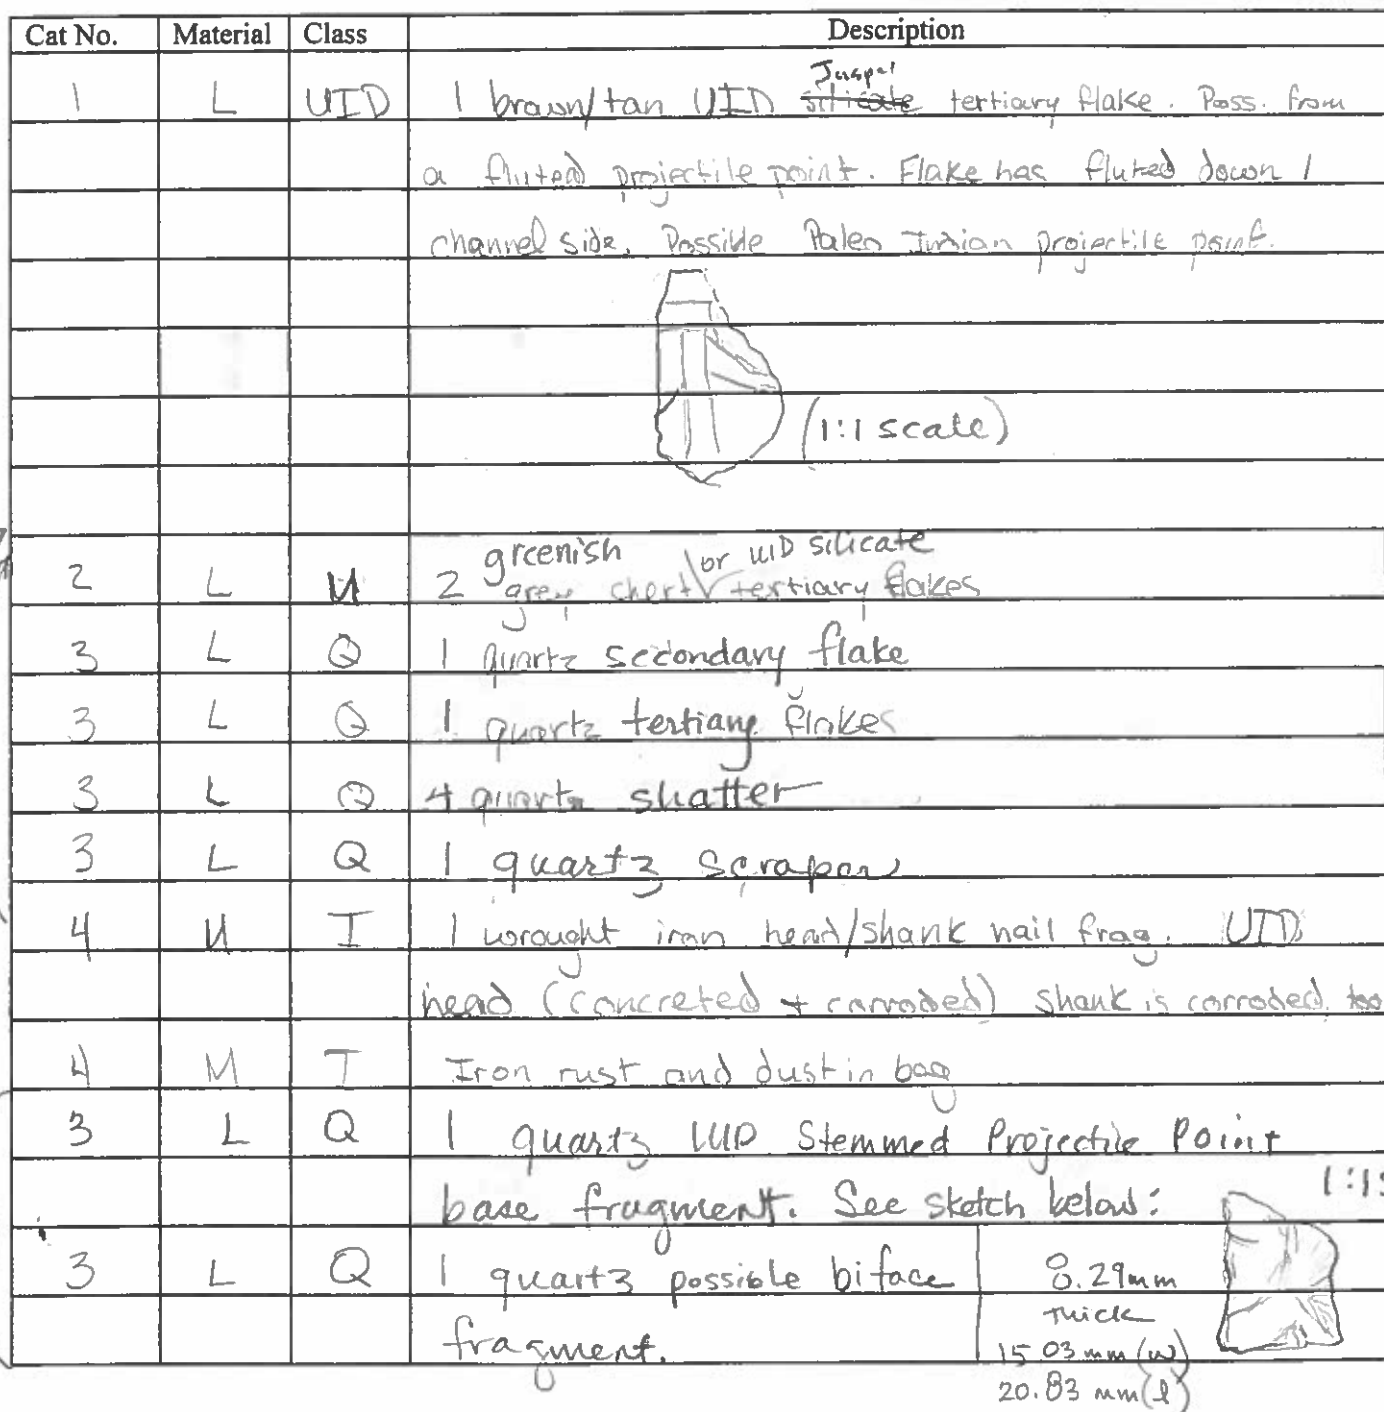 Cat No. Material Class Description
Jasper
1 L UID 1 brown/tan UID silicate tertiary flake. Poss. from
a fluted projectile point. Flake has fluted down 1
channel side. Possible Paleo Indian projectile point.
(1:1 scale)
greenish or UID silicate
2 L U 2 grey chert tertiary flakes
3 L Q 1 quartz secondary flake
3 L Q 1 quartz tertiary flakes
3 L Q 4 quartz shatter
3 L Q 1 quartz scraper
4 M I 1 wrought iron head/shank nail frag. UID
head (concreted + corroded) shank is corroded too
4 M I Iron rust and dust in bag
3 L Q 1 quartz UID Stemmed Projectile Point
base fragment. See sketch below: 1:1
3 L Q 1 quartz possible biface 8.29mm
fragment. Thick
15.03 mm (w)
20.83 mm (l)